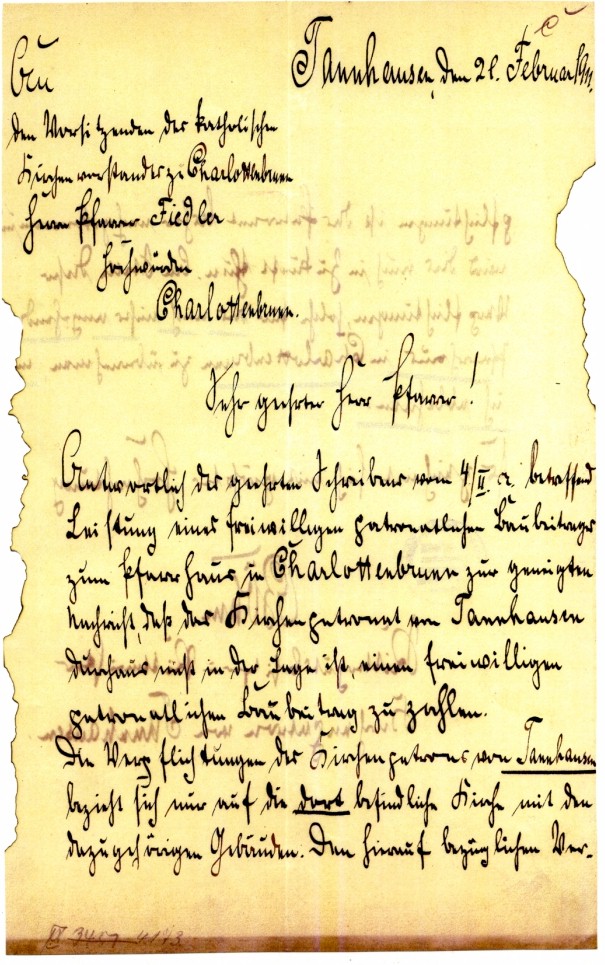 Tannhausen, den 21. Februar 1911.
An
den Vorsitzenden des katholischen
Kirchenvorstandes zu Charlottenbrunn
Herrn Pfarrer Fiedler
Hochwürden
Charlottenbrunn.
Sehr geehrter Herr Pfarrer!
Antwortlich des geehrten Schreibens vom 4/II. c. betreffend
Leistung eines freiwilligen patronatlichen Baubeitrages
zum Pfarrhaus in Charlottenbrunn zur geneigten
Nachricht, daß das Kirchenpatronat von Tannhausen
durchaus nicht in der Lage ist, einen freiwilligen
patronatlichen Baubeitrag zu zahlen.
Die Verpflichtungen des Kirchenpatrons von Tannhausen
bezieht sich nur auf die dort befindliche Kirche mit den
dazugehörigen Gebäuden. Den hierauf bezüglichen Ver-